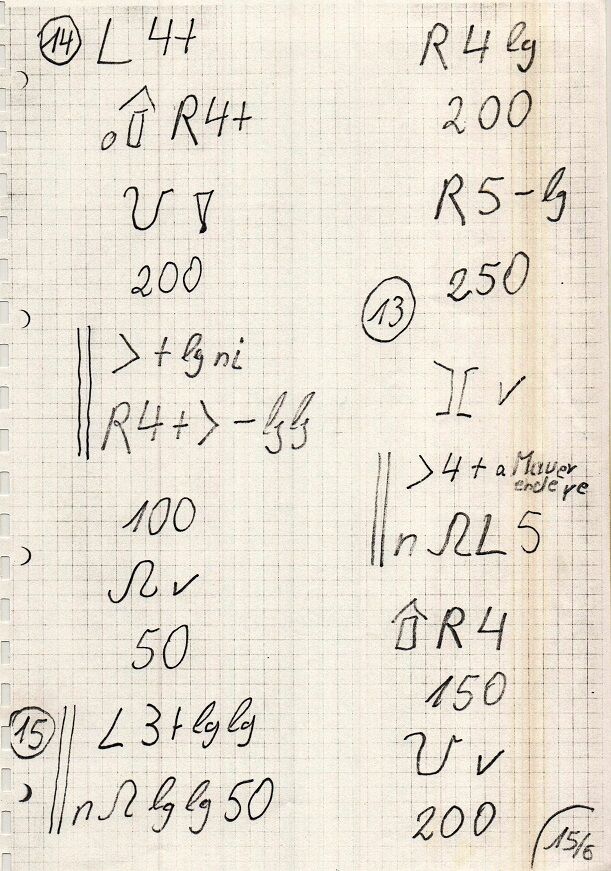 14 L 4+
R4+
℧
200
> + lg ni
R4+ > – lg lg
100
Ω v
50
15 L 3+ lg lg
n Ω lg lg 50
R 4 lg
200
R 5 – lg
250
13
v
> 4+ a Mauer
ende re
n Ω L 5
R 4
150
℧ v
200
15/6